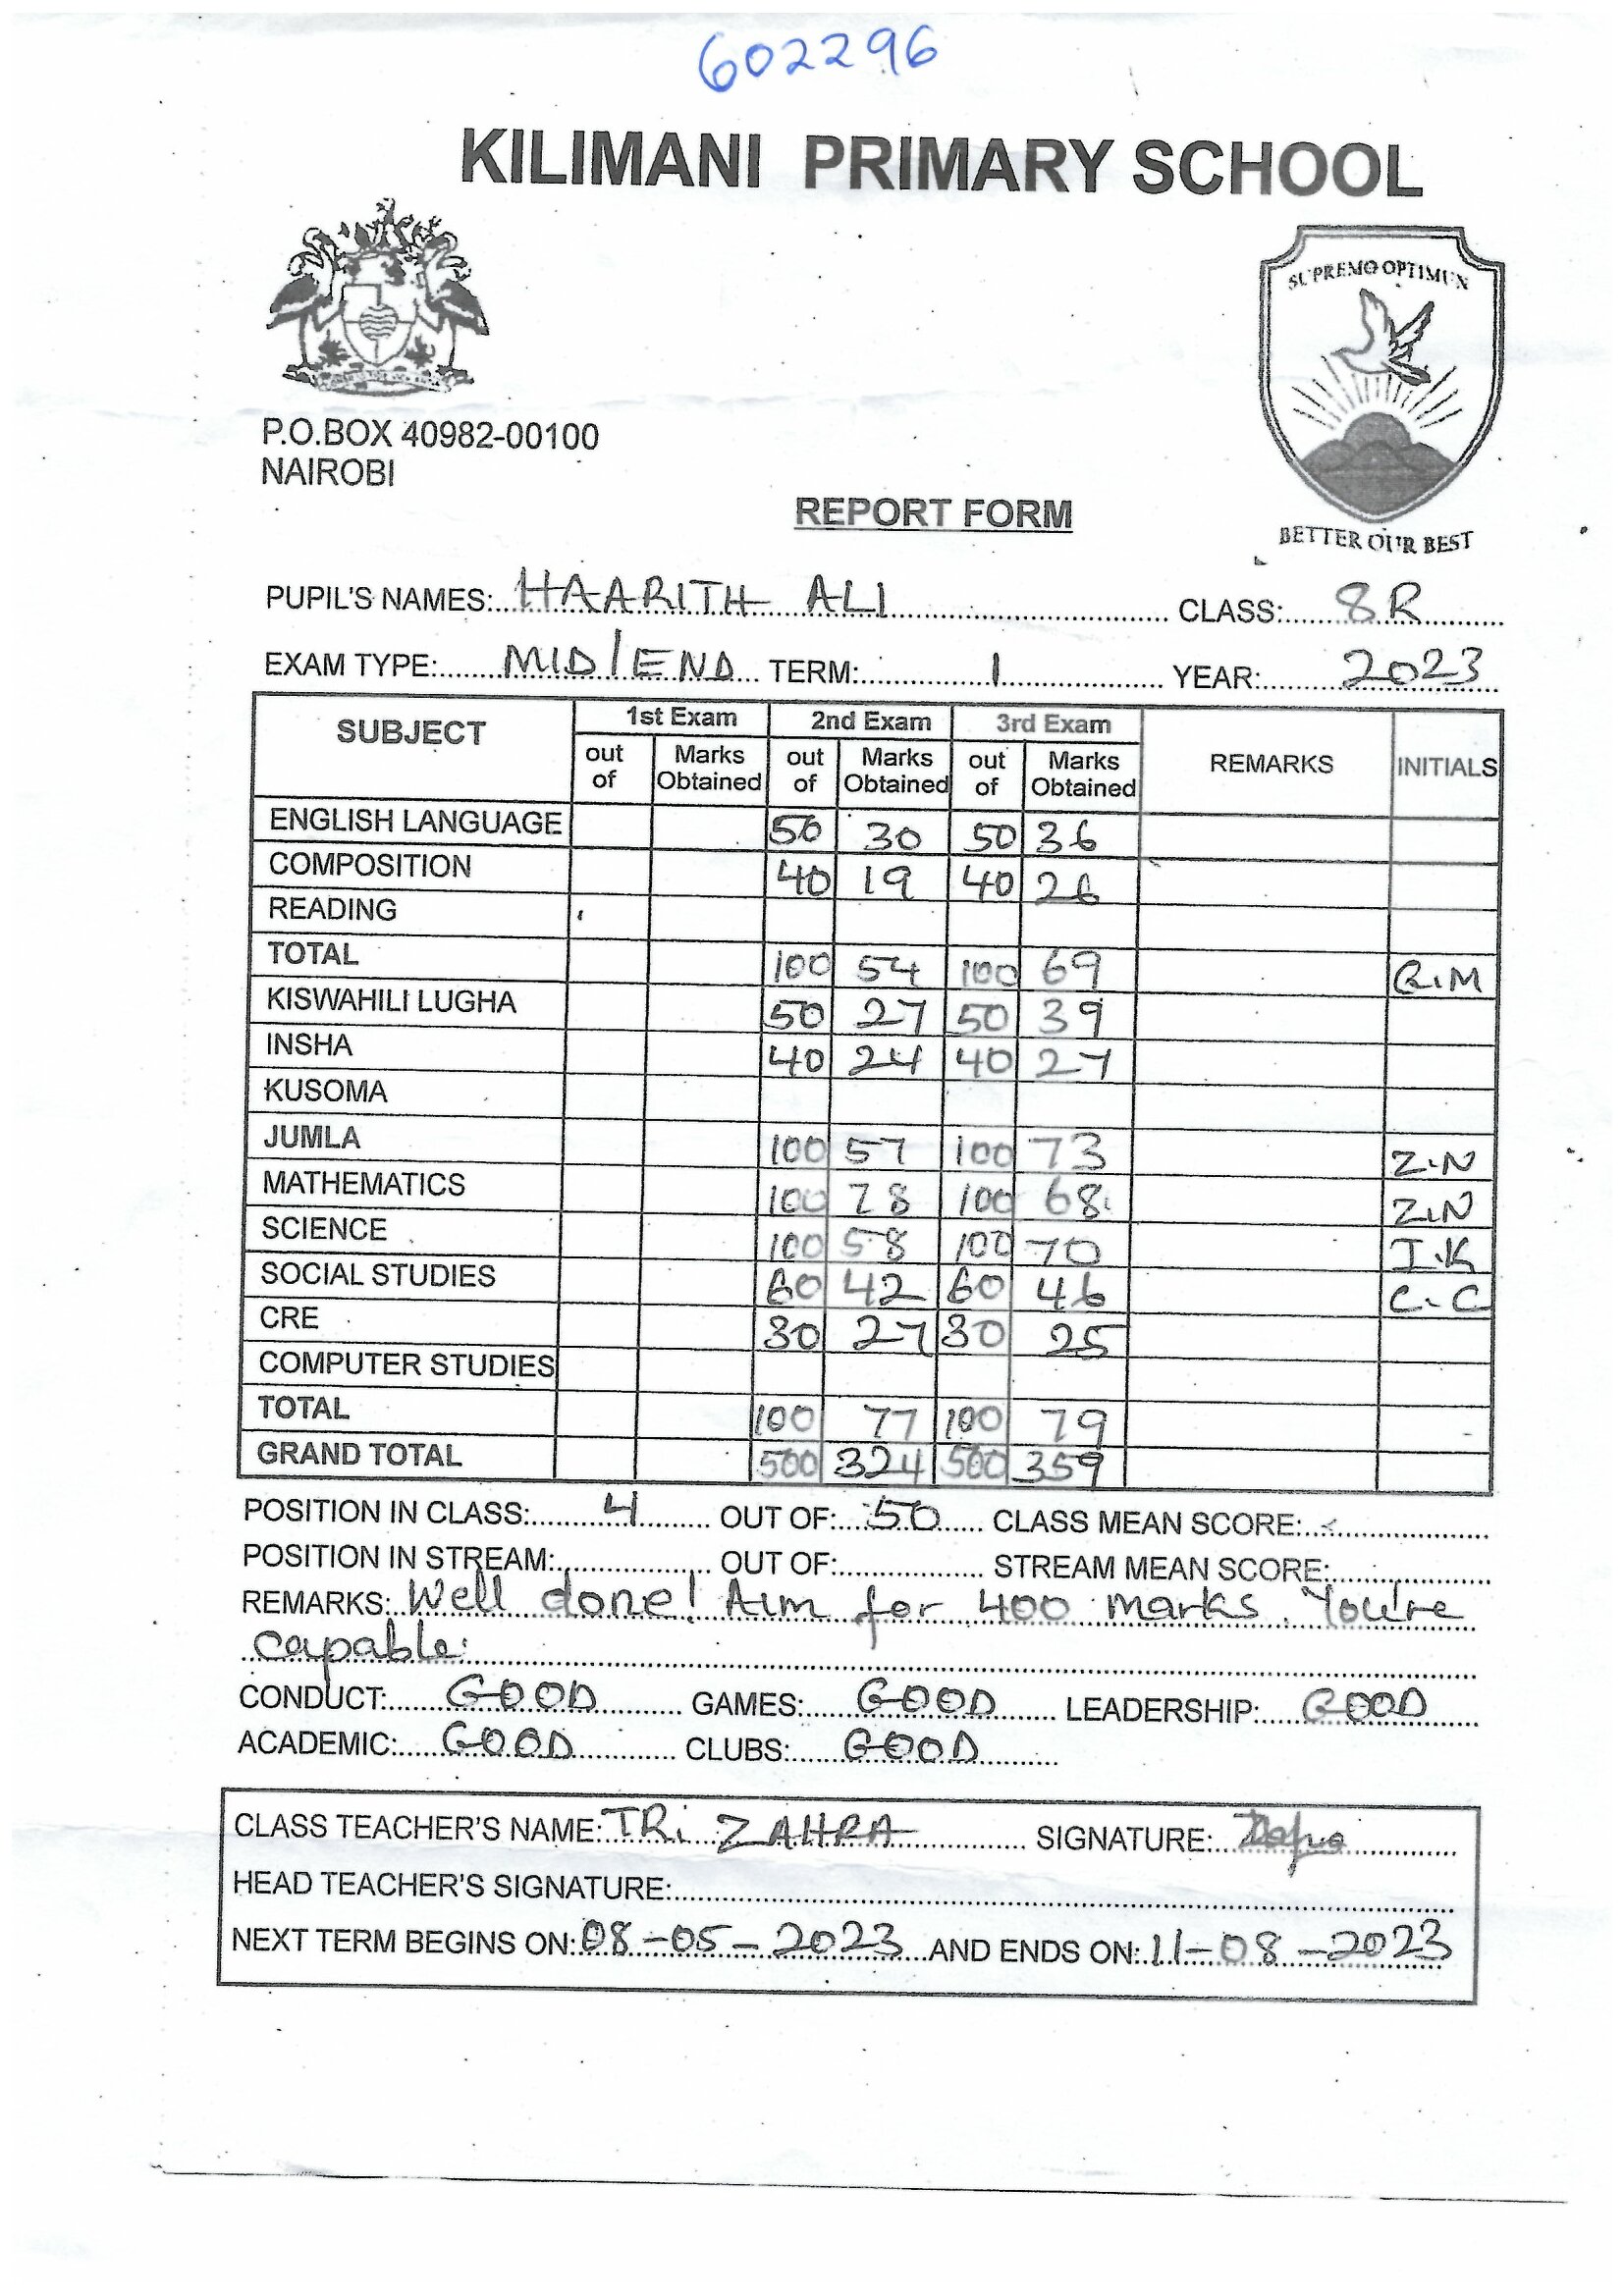 602296
KILIMANI PRIMARY SCHOOL
SUPREMO OPTIMUN
P.O.BOX 40982-00100
NAIROBI
BETTER OUR BEST
REPORT FORM
PUPIL'S NAMES: HAARITH ALI CLASS: 8R
EXAM TYPE: MID/END TERM: 1 YEAR: 2023
SUBJECT 1st Exam 2nd Exam 3rd Exam REMARKS INITIALS
out of Marks Obtained out of Marks Obtained out of Marks Obtained
ENGLISH LANGUAGE 50 30 50 36
COMPOSITION 40 19 40 26
READING
TOTAL 100 54 100 69 R.M
KISWAHILI LUGHA 50 27 50 39
INSHA 40 24 40 27
KUSOMA
JUMLA 100 57 100 73 Z.N
MATHEMATICS 100 78 100 68 Z.N
SCIENCE 100 58 100 70 I.K
SOCIAL STUDIES 60 42 60 46 C.C
CRE 30 27 30 25
COMPUTER STUDIES
TOTAL 100 77 100 79
GRAND TOTAL 500 324 500 359
POSITION IN CLASS: 4 OUT OF: 50 CLASS MEAN SCORE:
POSITION IN STREAM: OUT OF: STREAM MEAN SCORE:
REMARKS: Well done! Aim for 400 marks. You're
capable.
CONDUCT: GOOD GAMES: GOOD LEADERSHIP: GOOD
ACADEMIC: GOOD CLUBS: GOOD
CLASS TEACHER'S NAME: TR. ZAHRA SIGNATURE:
HEAD TEACHER'S SIGNATURE:
NEXT TERM BEGINS ON: 08-05-2023 AND ENDS ON: 11-08-2023